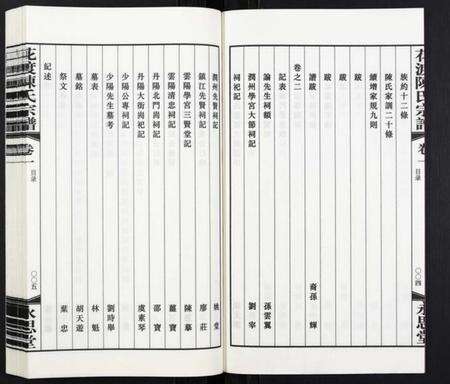 花渡陳氏宗譜
卷一
目录
〇〇四
永思堂
族約十二條
陳氏家訓二十條
續增家規九則
跋
跋 裔孫 輝
讀跋
卷之二
記表
諭先生祠額 孫雲翼
潤州學宮大節祠記 劉宰
祠祀記
潤州先賢祠記 姚堂
鎮江先賢祠記 廖莊
雲陽學宮三賢堂記 陳摹
雲陽清忠祠記 蕭寶
丹陽北門崗祠記 邵寶
丹陽大街崗祀記 虞素琴
少陽公專祠記
少陽先生墓考 劉時舉
墓表 林魁
墓銘 胡天遊
祭文 葉忠
紀述
花渡陳氏宗譜
卷一
目录
〇〇五
永思堂